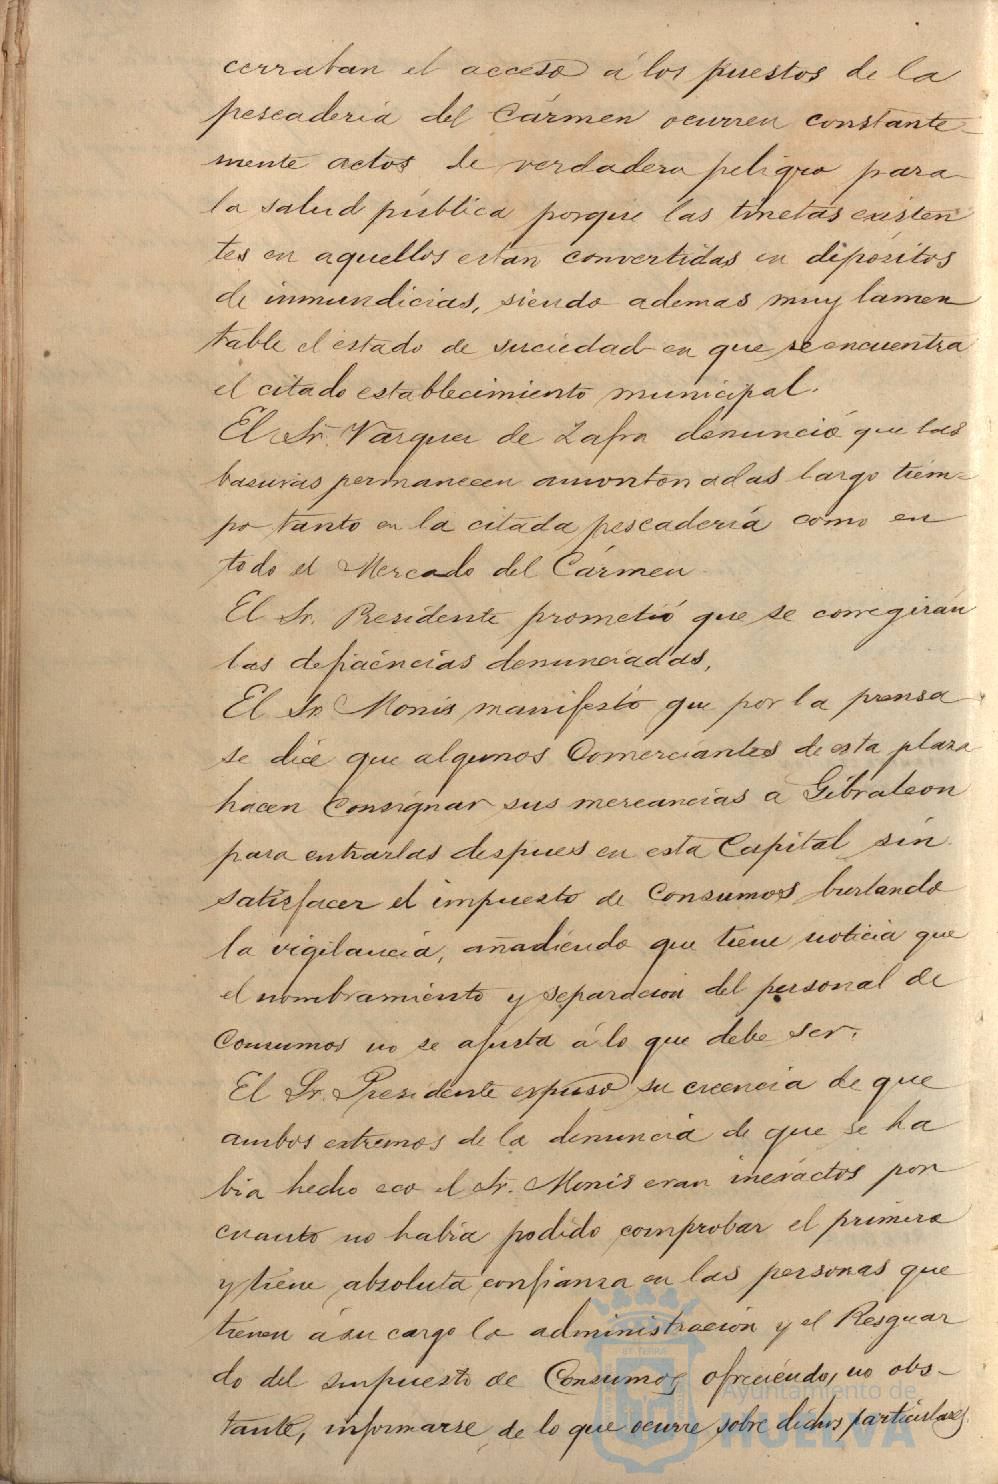 cerraban el acceso á los puestos de la
pescaderia del Cármen ocurren constante-
mente actos de verdadero peligro para
la salud pública porque las tinetas existen
tes en aquellos estan convertidas en depósitos
de inmundicias, siendo ademas muy lamen
table el estado de suciedad en que se encuentra
el citado establecimiento municipal.
El Sr. Vazquez de Zafra denunció que las
basuras permanecen amontonadas largo tiem-
po tanto en la citada pescadería como en
todo el Mercado del Cármen
El Sr. Presidente prometió que se corregirán
las deficiencias denunciadas.
El Sr. Monis manifestó que por la prensa
se dice que algunos Comerciantes de esta plaza
hacen consignar sus mercancias a Gibraleon
para entrarlas despues en esta Capital sin
satisfacer el impuesto de Consumos burlando
la vigilancia, añadiendo que tiene noticia que
el nombramiento y separacion del personal de
Consumos no se ajusta á lo que debe ser.
El Sr. Presidente expuso su creencia de que
ambos extremos de la denuncia de que se ha
bia hecho eco el Sr. Monis eran inexactos por
cuanto no habia podido comprobar el primero
y tiene absoluta confianza en las personas que
tienen á su cargo la administración y el Resguar
do del impuesto de Consumos ofreciendo, no obs-
tante, informarse de lo que ocurre sobre dichos particulares.
Ayuntamiento de
HUELVA